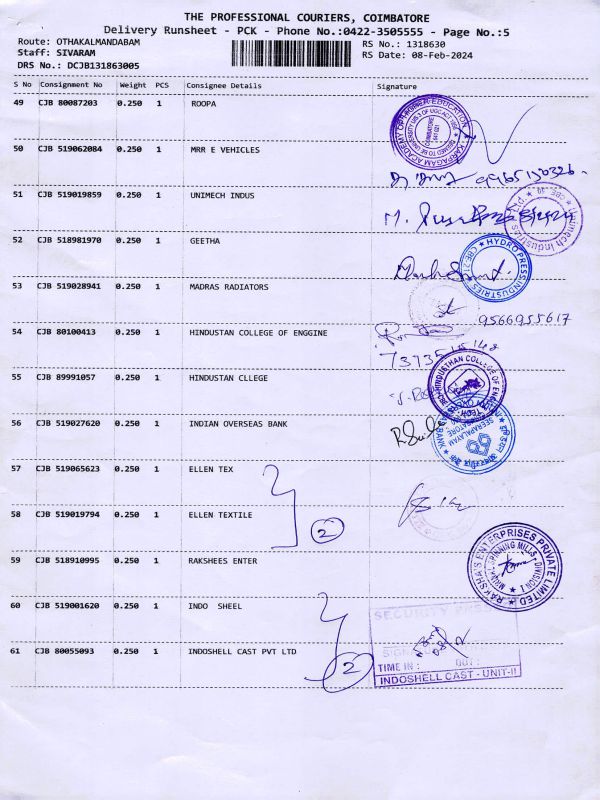 THE PROFESSIONAL COURIERS, COIMBATORE
Delivery Runsheet - PCK - Phone No.:0422-3505555 - Page No.:5
Route: OTHAKALMANDABAM
RS No.: 1318630
Staff: SIVARAM
RS Date: 08-Feb-2024
DRS No.: DCJB131863005
S No Consignment No Weight PCS Consignee Details Signature
49 CJB 80087203 0.250 1 ROOPA
50 CJB 519062084 0.250 1 MRR E VEHICLES
9965150326
51 CJB 519019859 0.250 1 UNIMECH INDUS
52 CJB 518981970 0.250 1 GEETHA
HYDRO PRESS INDUSTRIES
53 CJB 519028941 0.250 1 MADRAS RADIATORS
9566955617
54 CJB 80100413 0.250 1 HINDUSTAN COLLEGE OF ENGGINE
55 CJB 89991057 0.250 1 HINDUSTAN CLLEGE
56 CJB 519027620 0.250 1 INDIAN OVERSEAS BANK
57 CJB 519065623 0.250 1 ELLEN TEX
58 CJB 519019794 0.250 1 ELLEN TEXTILE
2
59 CJB 518910995 0.250 1 RAKSHEES ENTER
RAKSHA'S ENTERPRISES PRIVATE LIMITED
SPINNING MILLS - DIVISION I
60 CJB 519001620 0.250 1 INDO SHEEL
61 CJB 80055093 0.250 1 INDOSHELL CAST PVT LTD
2
TIME IN : OUT :
INDOSHELL CAST - UNIT-II